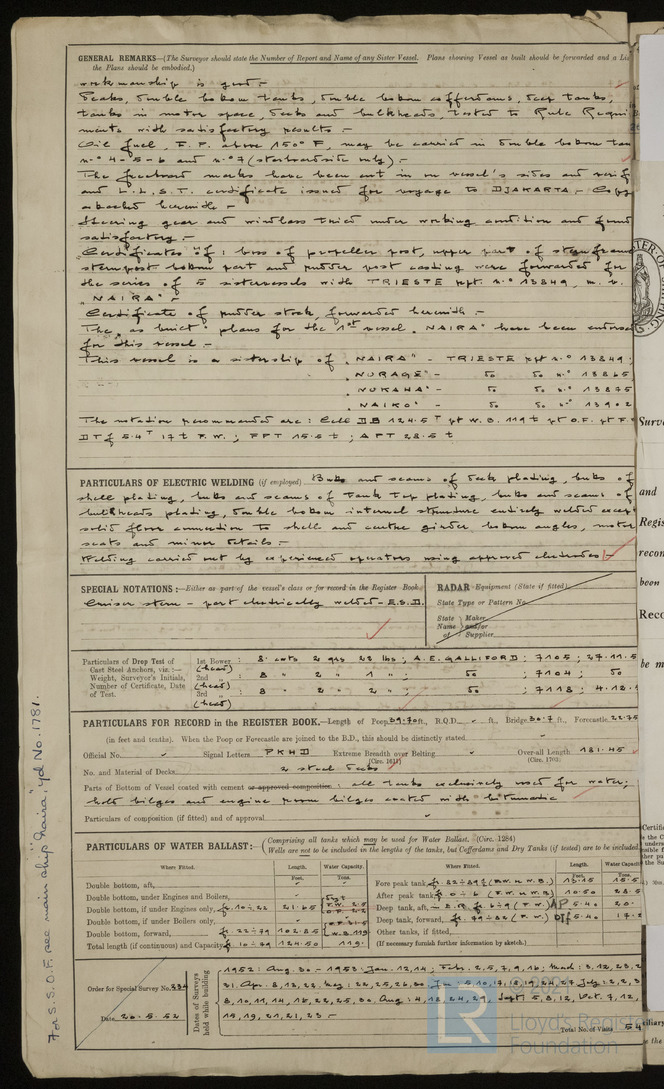 GENERAL REMARKS—(The Surveyor should state the Number of Report and Name of any Sister Vessel. Plans showing Vessel as built should be forwarded and a
the Plans should be embodied.)
workmanship is good.-
Peaks, double bottom tanks, double bottom cofferdams, deep tanks,
tanks in motor space, decks and bulkheads, tested to Rule Requi
ments with satisfactory results.-
Oil fuel, F.P. above 150° F, may be carried in double bottom tan
n.° 4-5-6 and n.° 7 (starboard side only).-
The freeboard marks have been cut in on vessel's sides and verif
and L.L.S.T. certificate issued for voyage to DJAKARTA - Copy
attached herewith.-
Steering gear and windlass tried under working condition and found
satisfactory.-
Certificates of: boss of propeller post, upper part of sternframe
sternpost bottom part and rudder post casting were forwarded for
the series of 5 sistervessels with TRIESTE rpt. n.° 13849, m.v.
"NAIRA".-
Certificate of rudder stock, forwarded herewith.-
The "as built" plans for the 1st vessel "NAIRA" have been endorse
for this vessel.-
This vessel is a sistership of "NAIRA" - TRIESTE rpt n.° 13849;
"NURAGE" - do do n.° 13865
"NUKAHA" - do do n.° 13875
"NAIKO" - do do n.° 13902
The notation recommended are: Cell DB 124.5' pt W.B. 119 t pt O.F. pt F.
DT f 5.4' 17 t F.W.; FPT 15.5 t; APT 28.5 t
PARTICULARS OF ELECTRIC WELDING (if employed) Butts and seams of deck plating, butts of
shell plating, butts and seams of tank top plating, butts and seams of
bulkheads plating, double bottom internal structure entirely welded except
solid floor connection to shell and centre girder bottom angles, motor
seats and minor details.-
Welding carried out by experienced operators using approved electrodes.-
SPECIAL NOTATIONS:—Either as part of the vessel's class or for record in the Register Book.
Cruiser stern - part electrically welded - E.S.D.
RADAR Equipment (State if fitted)
State Type or Pattern No.
State Name of Maker and/or Supplier
Particulars of Drop Test of Cast Steel Anchors, viz.:— Weight, Surveyor's Initials, Number of Certificate, Date of Test.
1st Bower (head) : 8 cwts 2 qrs 22 lbs; A.E. GALLIFORD; 7105; 27.11.5
2nd " (head) : 8 " 2 " 1 " ; do ; 7104; do
3rd " (head) : 8 " 2 " 2 " ; do ; 7118; 4.12.
PARTICULARS FOR RECORD in the REGISTER BOOK.—Length of Poop 39.70 ft., R.Q.D. ft., Bridge 30.7 ft., Forecastle 22.75
(in feet and tenths). When the Poop or Forecastle are joined to the B.D., this should be distinctly stated
Official No. Signal Letters PKHD Extreme Breadth over Belting (Circ. 1611) Over-all Length 181.45 (Circ. 1703)
No. and Material of Decks 2 steel decks
Parts of Bottom of Vessel coated with cement or approved composition: all tanks exclusively used for water;
hold bilges and engine room bilges coated with bitumastic
Particulars of composition (if fitted) and of approval
PARTICULARS OF WATER BALLAST:— (Comprising all tanks which may be used for Water Ballast. (Circ. 1284)
Wells are not to be included in the lengths of the tanks, but Cofferdams and Dry Tanks (if tested) are to be included
Where Fitted. Length. Feet. Water Capacity. Tons. Where Fitted. Length. Feet. Water Capacity Tons.
Double bottom, aft,
Double bottom, under Engines and Boilers,
Double bottom, if under Engines only, fr. 10÷22 21.65
Double bottom, if under Boilers only
Double bottom, forward, fr. 22÷79 102.85 W.B. 119
Total length (if continuous) and Capacity fr. 10÷79 124.50 119.
Fore peak tank, 15.5
After peak tank, 10.50 28.5
Deep tank, aft, 5.40 20.
Deep tank, forward, fr. 79÷82 (F.W.) 5.40
Other tanks, if fitted,
(If necessary furnish further information by sketch.)
Order for Special Survey No. 234
Date 20.5.52
Dates of Surveys held while building
1952: Aug. 30 - 1953: Jan. 12, 14; Feb. 2, 5, 7, 9, 16; Mar: 3, 12, 23, 2
31, Apr. 8, 13, 22, May: 22, 25, 26, 30, Jun: 5, 10, 17, 18, 24, 27 July: 2, 2, 3
8, 10, 11, 14, 16, 22, 25, 30, Aug: 4, 18, 24, 29, Sept: 5, 8, 12, Oct. 7, 12,
15, 19, 21, 21, 23.-
Total No. of Visits 54
For S.S.O.F. see main ship "Naira", Yd No. 1781.
© 2021
LR
Lloyd's Register
Foundation